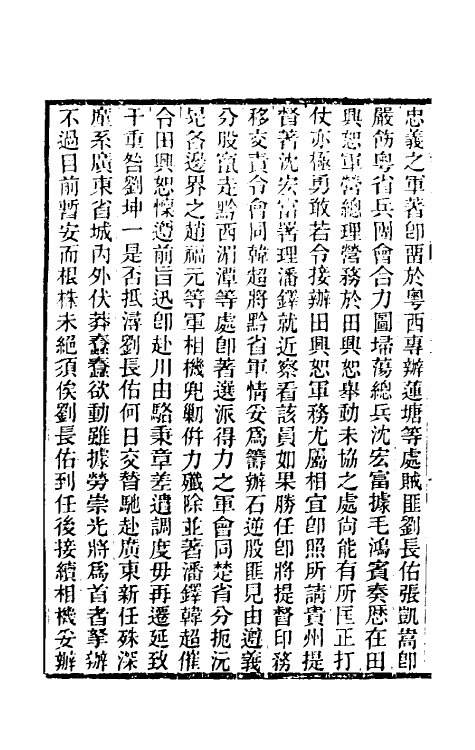 忠義之軍著卽留於粵西專辦蓮塘等處賊匪劉長佑張凱嵩卽
嚴飭粵省兵團會合力圖埽蕩總兵沈宏富據毛鴻賓奏歴在田
興恕軍營總理營務於田興恕舉動未協之處尚能有所匡正打
仗亦極勇敢若令接辦田興恕軍務尤屬相宜卽照所請貴州提
督著沈宏富署理潘鐸就近察看該員如果勝任卽將提督印務
移交責令會同韓超將黔省軍情妥爲籌辦石逆股匪見由遵義
分股竄走黔西湄潭等處卽著選派得力之軍會同楚省分扼沅
晃各邊界之趙福元等軍相機兜勦併力殲除並著潘鐸韓超催
令田興恕懍遵前旨迅卽赴川由駱秉章差遣調度毋再遷延致
干重咎劉坤一是否抵潯劉長佑何日交替馳赴廣東新任殊深
廑系廣東省城內外伏莽蠢蠢欲動雖據勞崇光將爲首者拏辦
不過目前暫安而根株未絕須俟劉長佑到任後接續相機妥辦